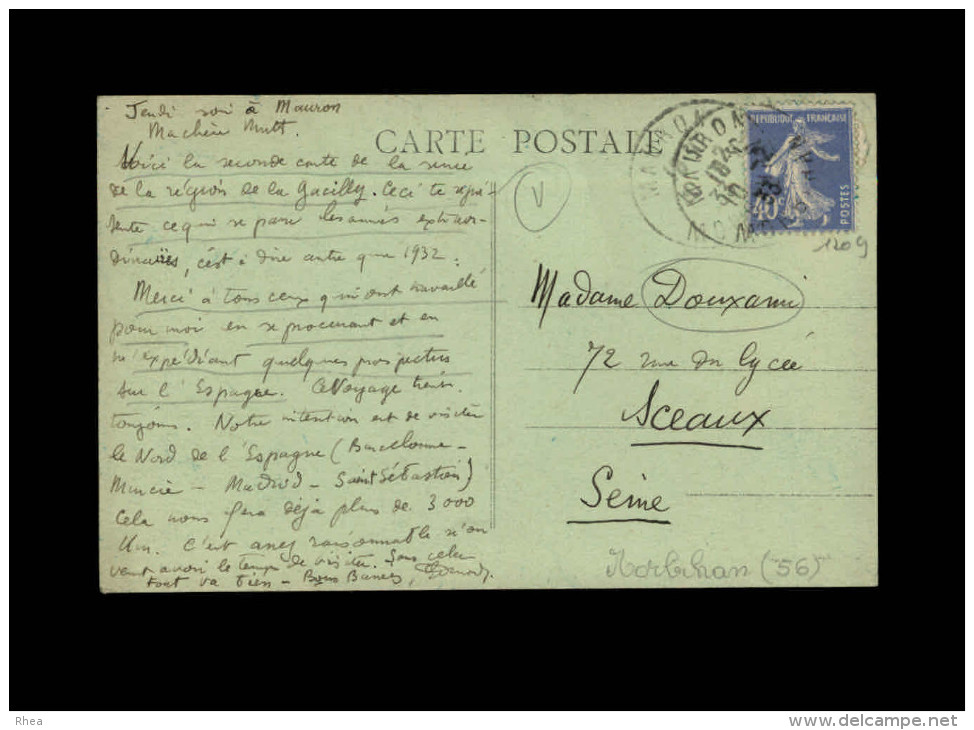 Jeudi soir à Mauron
Ma chère Mutt.
Voici la seconde carte de la série
de la région de la Gacilly. Ceci te repré-
sente ce qui se passe les années extraor-
dinaires, c'est à dire autre que 1932.
Merci à tous ceux qui ont travaillé
pour moi en se procurant et en
m'expédiant quelques prospectus
sur l'Espagne. Ce Voyage tient
toujours. Notre intention est de visiter
le Nord de l'Espagne (Barcelonne -
Murcie - Madrid - Saint Sébastien)
Cela nous fera déjà plus de 3000
Km. C'est assez raisonnable si on
veut avoir le temps de visiter. Sans cela
tout va bien - Bons Baisers,
CARTE POSTALE
V
MAURON
MORBIHAN
REPUBLIQUE FRANÇAISE
40c
POSTES
1209
Madame Douxami
72 rue du lycée
Sceaux
Seine
Morbihan (56)
Rhea
www.delcampe.net